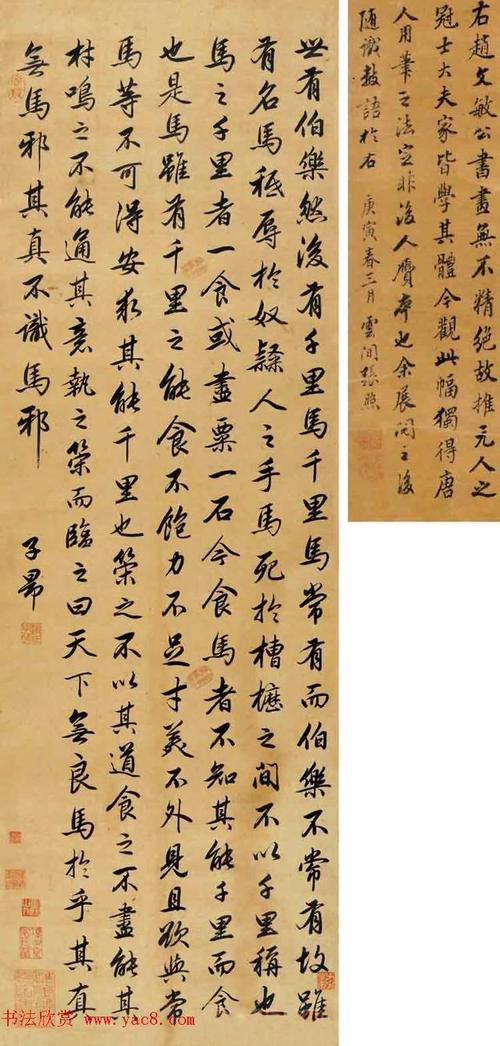 右趙文敏公書畫無不精絕故推元人之
冠士大夫家皆學其體今觀此幅獨得唐
人用筆之法定非後人贗本也余展閱之後
隨識數語於右 庚寅春三月 雲間張照
世有伯樂然後有千里馬千里馬常有而伯樂不常有故雖
有名馬秪辱於奴隸人之手馬死於槽櫪之間不以千里稱也
馬之千里者一食或盡粟一石今食馬者不知其能千里而食
也是馬雖有千里之能食不飽力不足才美不外見且欲與常
馬等不可得安求其能千里也策之不以其道食之不盡能其
材鳴之不能通其意執之策而臨之曰天下無良馬於乎其真
無馬邪其真不識馬邪
子昂
书法欣赏 www.yac8.com